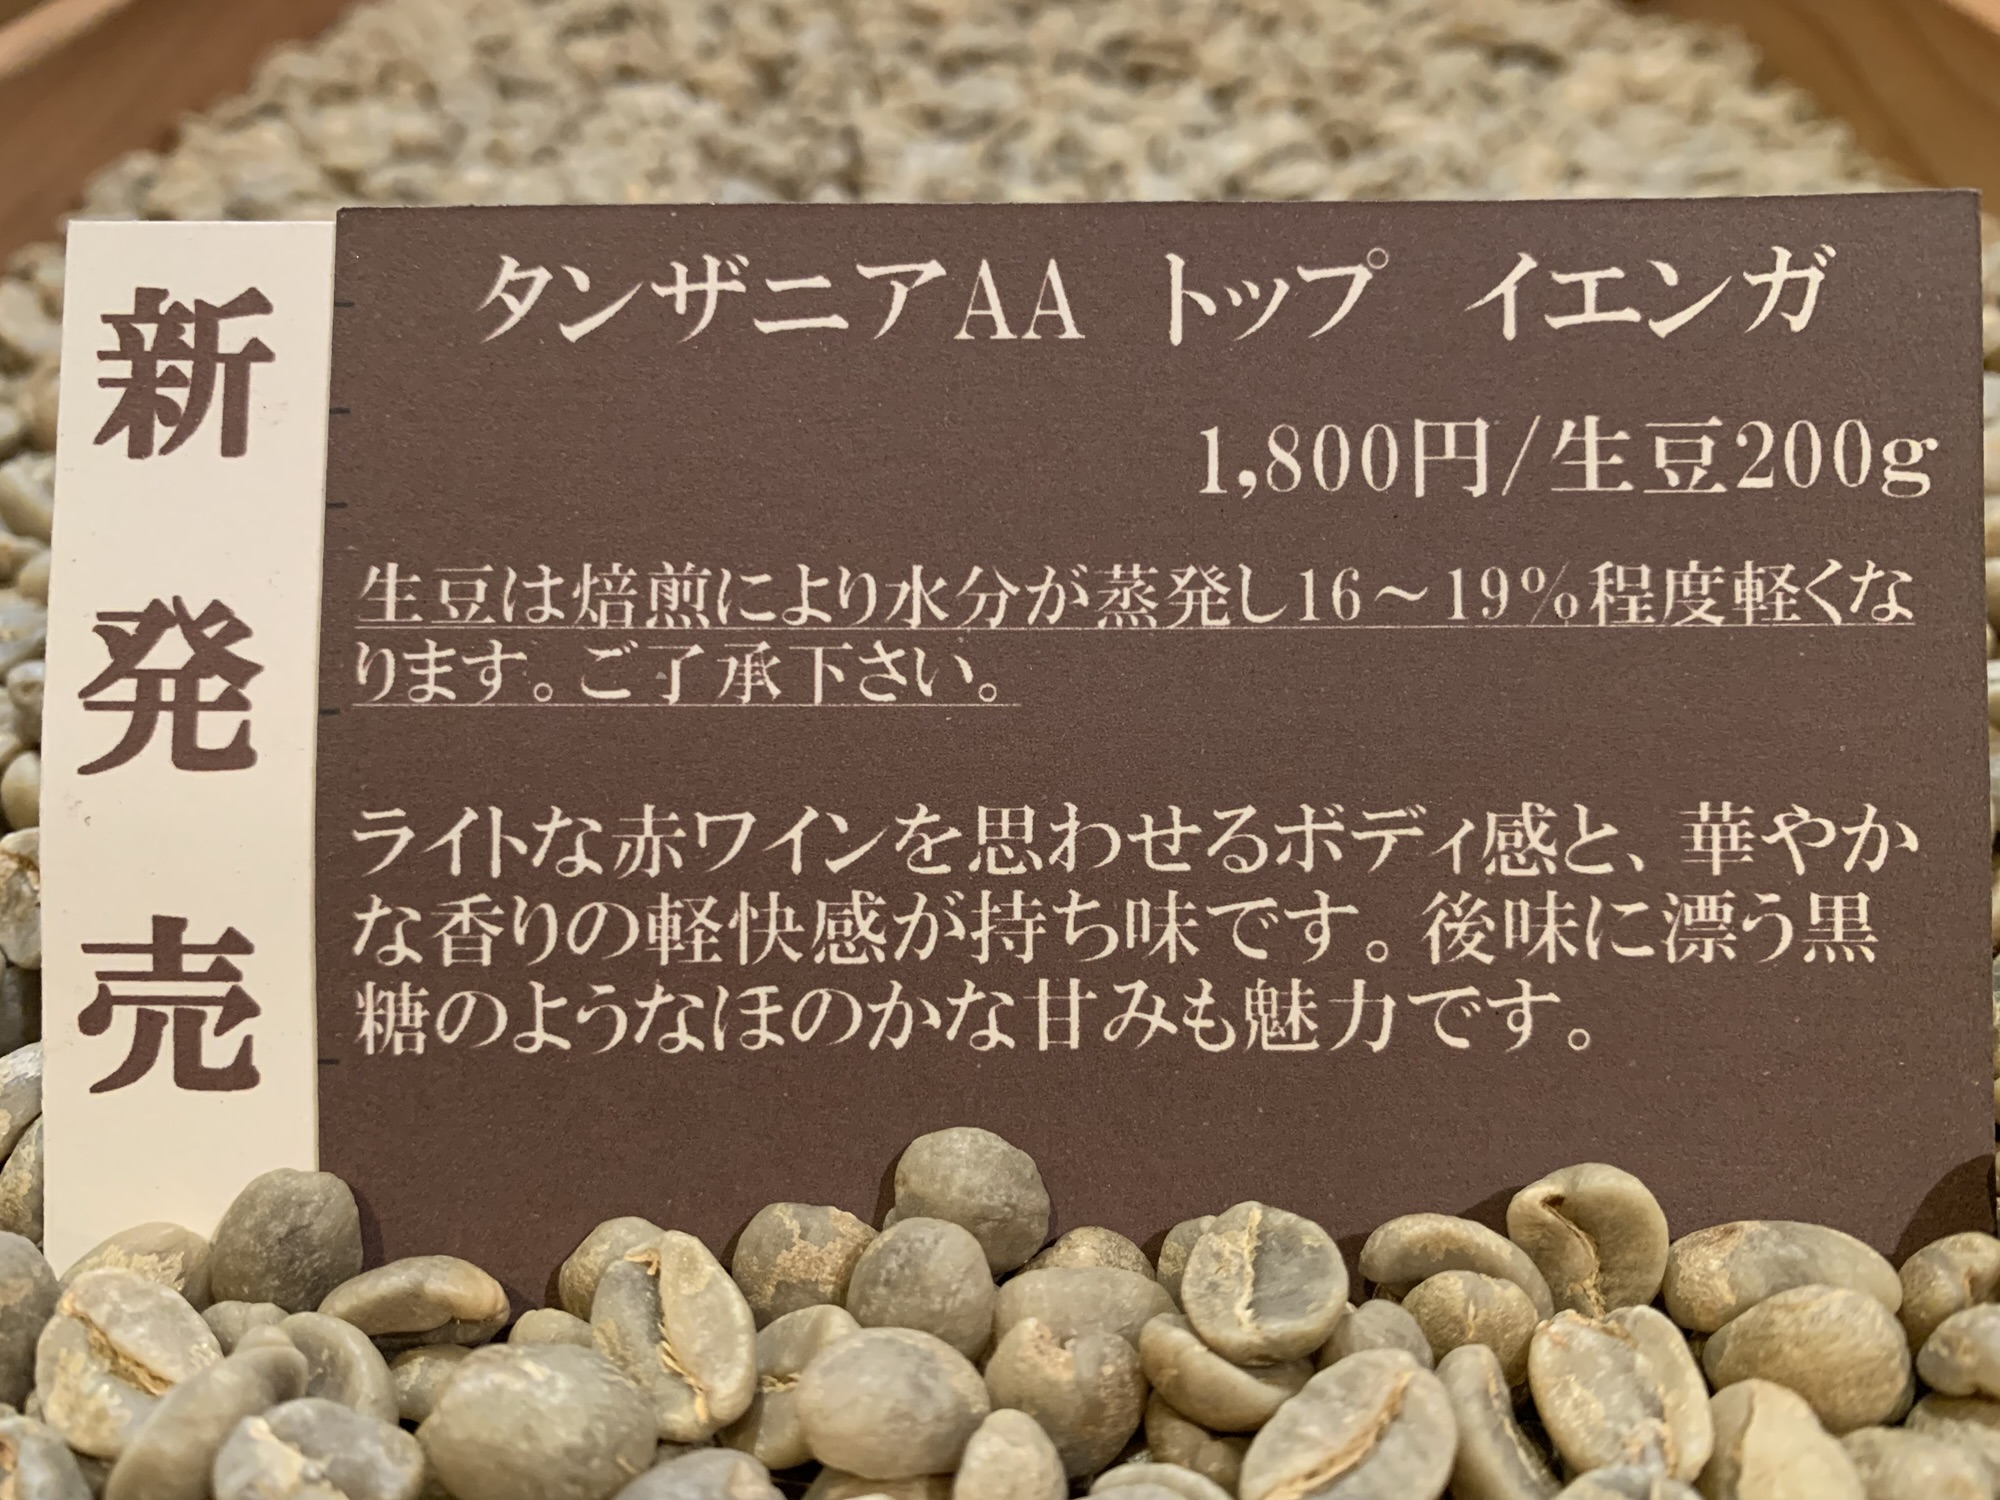 新発売
タンザニアAA トップ イエンガ
1,800円/生豆200g
生豆は焙煎により水分が蒸発し16～19%程度軽くな
ります。ご了承下さい。
ライトな赤ワインを思わせるボディ感と、華やか
な香りの軽快感が持ち味です。後味に漂う黒
糖のようなほのかな甘みも魅力です。